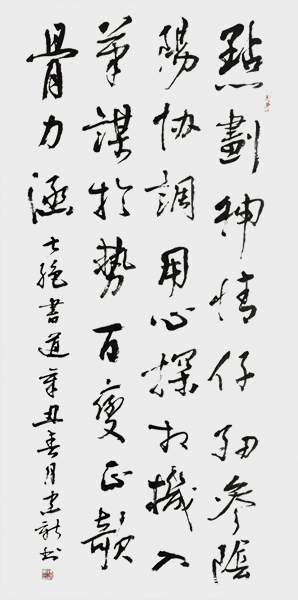 點劃神情仔細參陰
陽協調用心探相機入
筆謀於勢百變正韻
骨力涵 七絕書道辛丑春月建新书